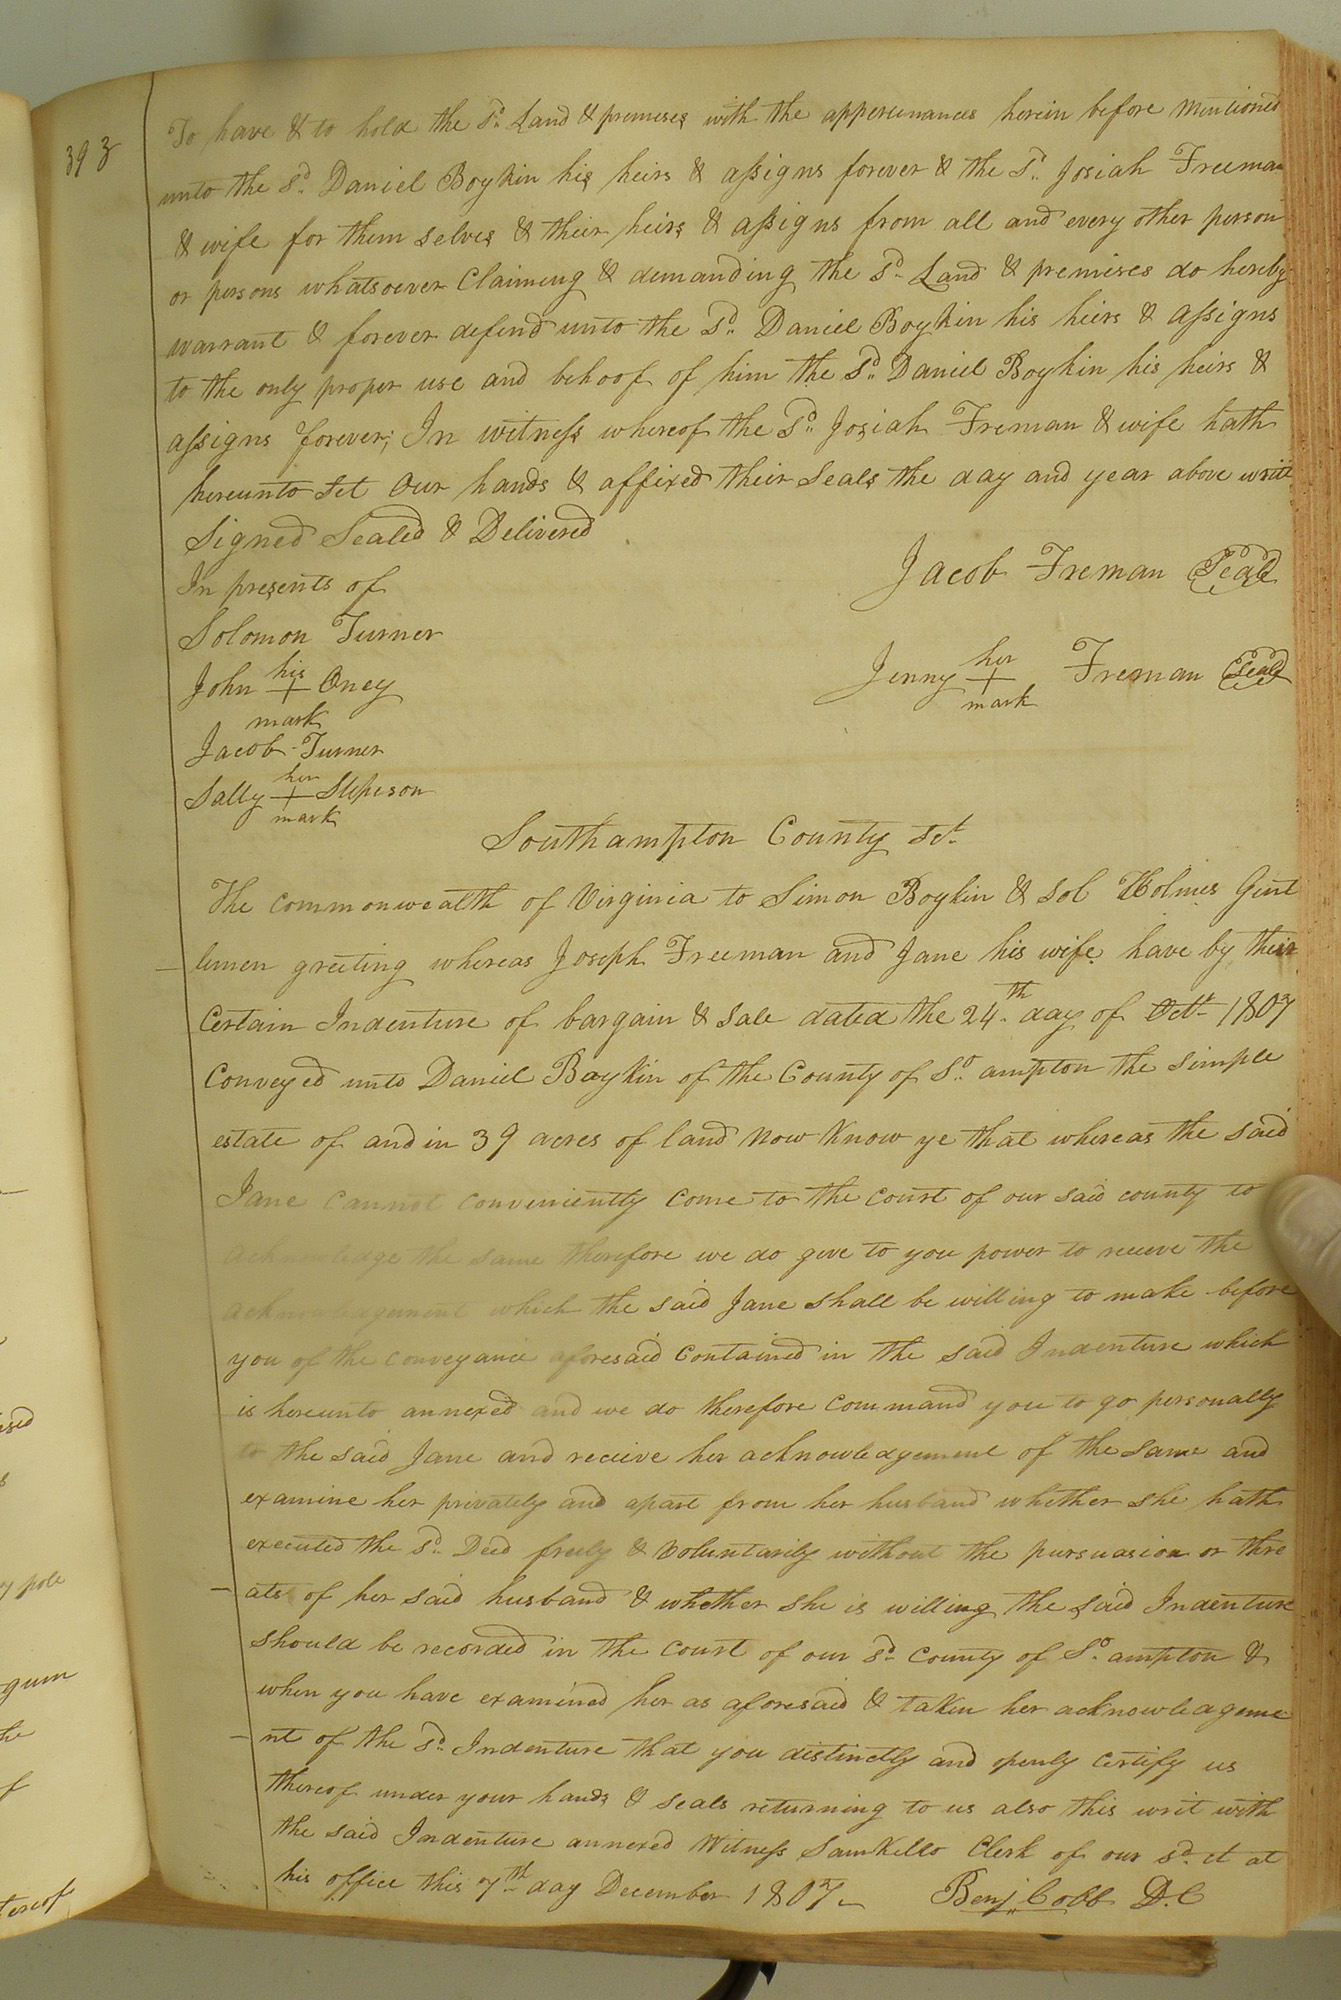 393
To have & to hold the sd. Land & premeses with the appertinances herein before mentioned
unto the sd. Daniel Boykin his heirs & assigns forever & the sd. Josiah Freeman
& wife for them selves & their heirs & assigns from all and every other person
or persons whatsoever Claimeng & demanding the sd. Land & premises do hereby
warrant & forever defend unto the sd. Daniel Boykin his heirs & assigns
to the only proper use and behoof of him the sd. Daniel Boykin his heirs &
assigns forever; In witness whereof the sd. Josiah Freman & wife hath
hereunto set Our hands & affixed their Seals the day and year above writt
Signed Sealed & Delivered
In presents of
Jacob Freman Seal
Solomon Turner
John his + mark Oney
Jenny her + mark Freman Seal
Jacob Turner
Sally her + mark
Southampton County Sct.
The commonwealth of Virginia to Simon Boykin & Sol Holmes Gent
lemen greeting whereas Joseph Freeman and Jane his wife have by their
Certain Indenture of bargain & sale dated the 24th. day of Octr. 1807
Conveyed unto Daniel Boykin of the County of So. ampton the simple
estate of and in 39 acres of land Now Know ye that whereas the said
Jane cannot conveniently come to the court of our said county to
acknowledge the same therefore we do give to you power to receve the
acknowledgement which the said Jane shall be willing to make before
you of the conveyance aforesaid Contained in the said Indenture which
is hereunto annexed and we do therefore command you to go personally
to the said Jane and recieve her acknowledgement of the same and
examine her privately and apart from her husband whether she hath
executed the sd. Deed freely & Voluntarily without the pursuasion or thre
ats of her said husband & whether she is willing the said Indenture
should be recorded in the court of our sd. County of So. ampton &
when you have examined her as aforesaid & taken her acknowledgeme
nt of the sd. Indenture that you distinctly and openly certify us
thereof under your hands & seals returning to us also this writ with
the said Indenture annexed Witness Saml Kello Clerk of our sd. ct at
his office this 7th. day December 1807.
Benj. Cobb D.C